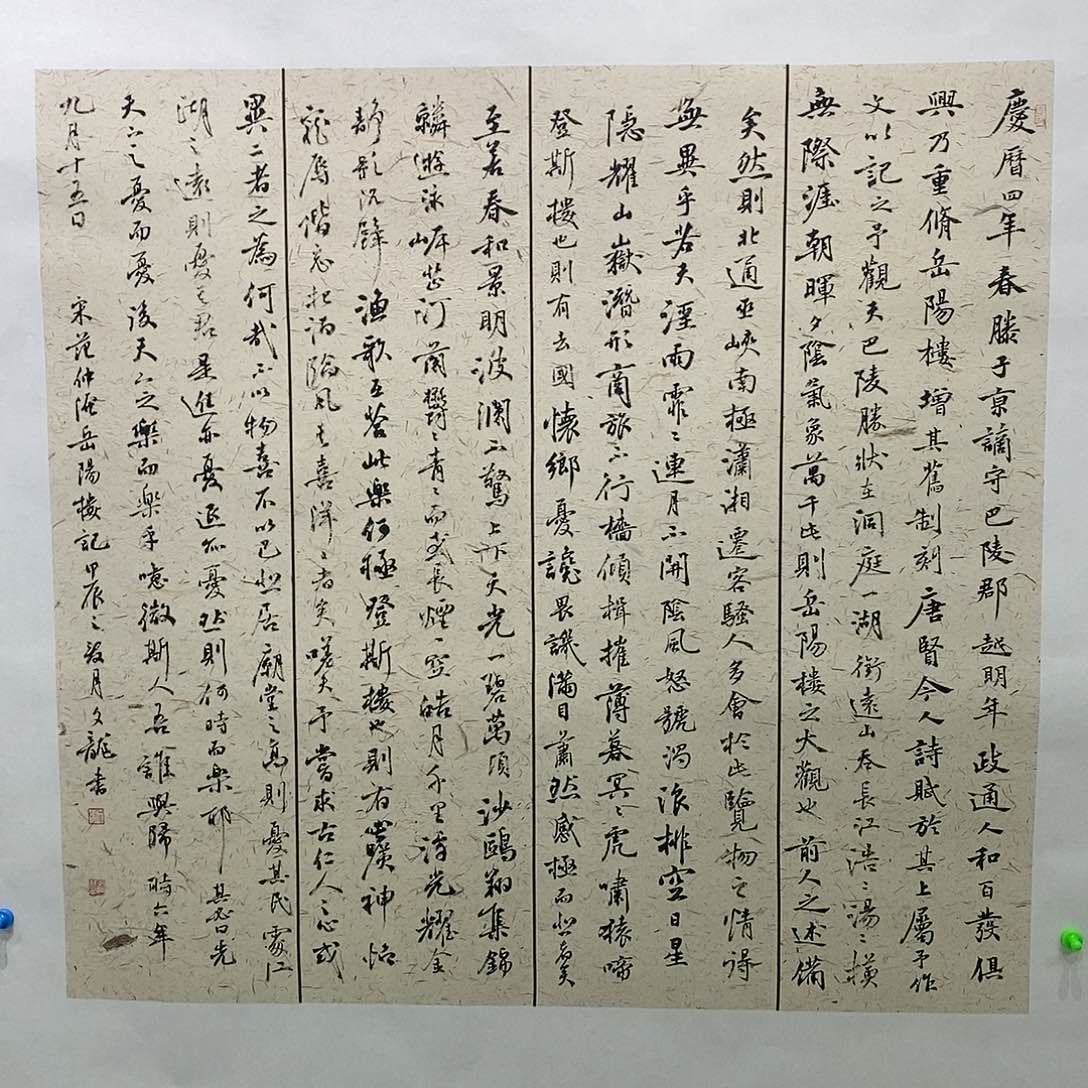 慶曆四年春滕子京謫守巴陵郡越明年政通人和百發俱
興乃重脩岳陽樓增其舊制刻唐賢今人詩賦於其上屬予作
文以記之予觀夫巴陵勝狀在洞庭一湖銜遠山吞長江浩〻湯〻橫
無際涯朝暉夕陰氣象萬千此則岳陽樓之大觀也前人之述備
矣然則北通巫峽南極瀟湘遷客騷人多會於此覽物之情得
無異乎若夫淫雨霏〻連月不開陰風怒號濁浪排空日星
隱耀山嶽潛形商旅不行檣傾楫摧薄暮冥〻虎嘯猿啼
登斯樓也則有去國懷鄉憂讒畏譏滿目蕭然感極而悲者矣
至若春和景明波瀾不驚上下天光一碧萬頃沙鷗翔集錦
鱗游泳岸芷汀蘭鬱〻青〻而或長煙一空皓月千里浮光耀金
靜影沉璧漁歌互答此樂何極登斯樓也則有心曠神怡
寵辱偕忘把酒臨風其喜洋〻者矣嗟夫予嘗求古仁人之心或
異二者之為何哉不以物喜不以己悲居廟堂之高則憂其民處江
湖之遠則憂其君是進亦憂退亦憂然則何時而樂耶其必曰先
天下之憂而憂後天下之樂而樂乎噫微斯人吾誰與歸時六年
九月十五日 宋范仲淹岳陽樓記甲辰之月文龍書